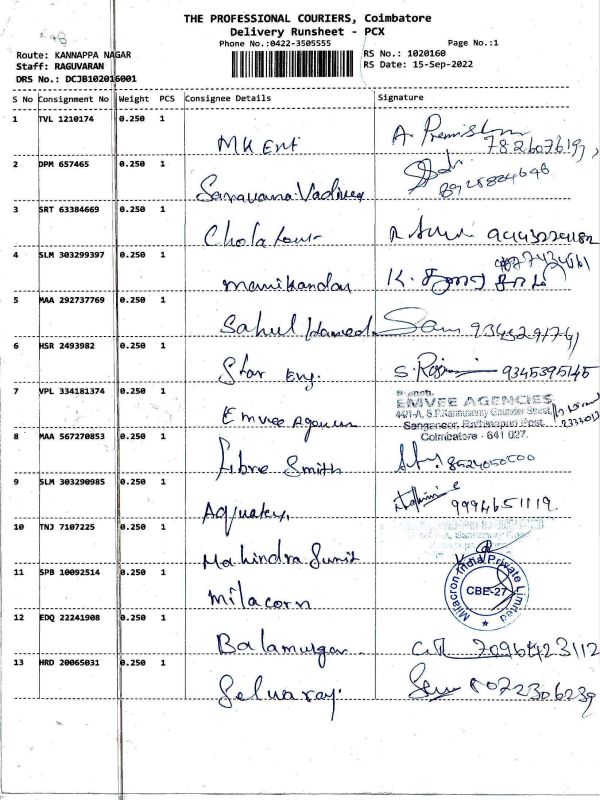 THE PROFESSIONAL COURIERS, Coimbatore
Delivery Runsheet - PCX
Phone No.:0422-3505555 Page No.:1
Route: KANNAPPA NAGAR RS No.: 1020160
Staff: RAGUVARAN RS Date: 15-Sep-2022
DRS No.: DCJB102016001
S No Consignment No Weight PCS Consignee Details Signature
1 TVL 1210174 0.250 1
MK Ent
2 DPM 657465 0.250 1
Saravana Vadivea
3 SRT 63384669 0.250 1
Chola tour
4 SLM 303299397 0.250 1
manikandan K.
5 MAA 292737769 0.250 1
Sahul Hameed Sam
6 HSR 2493982 0.250 1
Star Eng. S. 9345395145
7 VPL 334181374 0.250 1 EMVEE AGENCIES
Emvee Agencies Coimbatore - 641 027.
8 MAA 567270853 0.250 1
Fibre Smith 8524050500
9 SLM 303290985 0.250 1
Aquatex. 9994651119.
10 TNJ 7107225 0.250 1
Mahindra Sumit
11 SPB 10092514 0.250 1 Milacron India Private Limited
Milacorn CBE-27
12 EDQ 22241908 0.250 1
Balamurgan 7096423112
13 HRD 20065031 0.250 1
Selvaraj. 8072306239